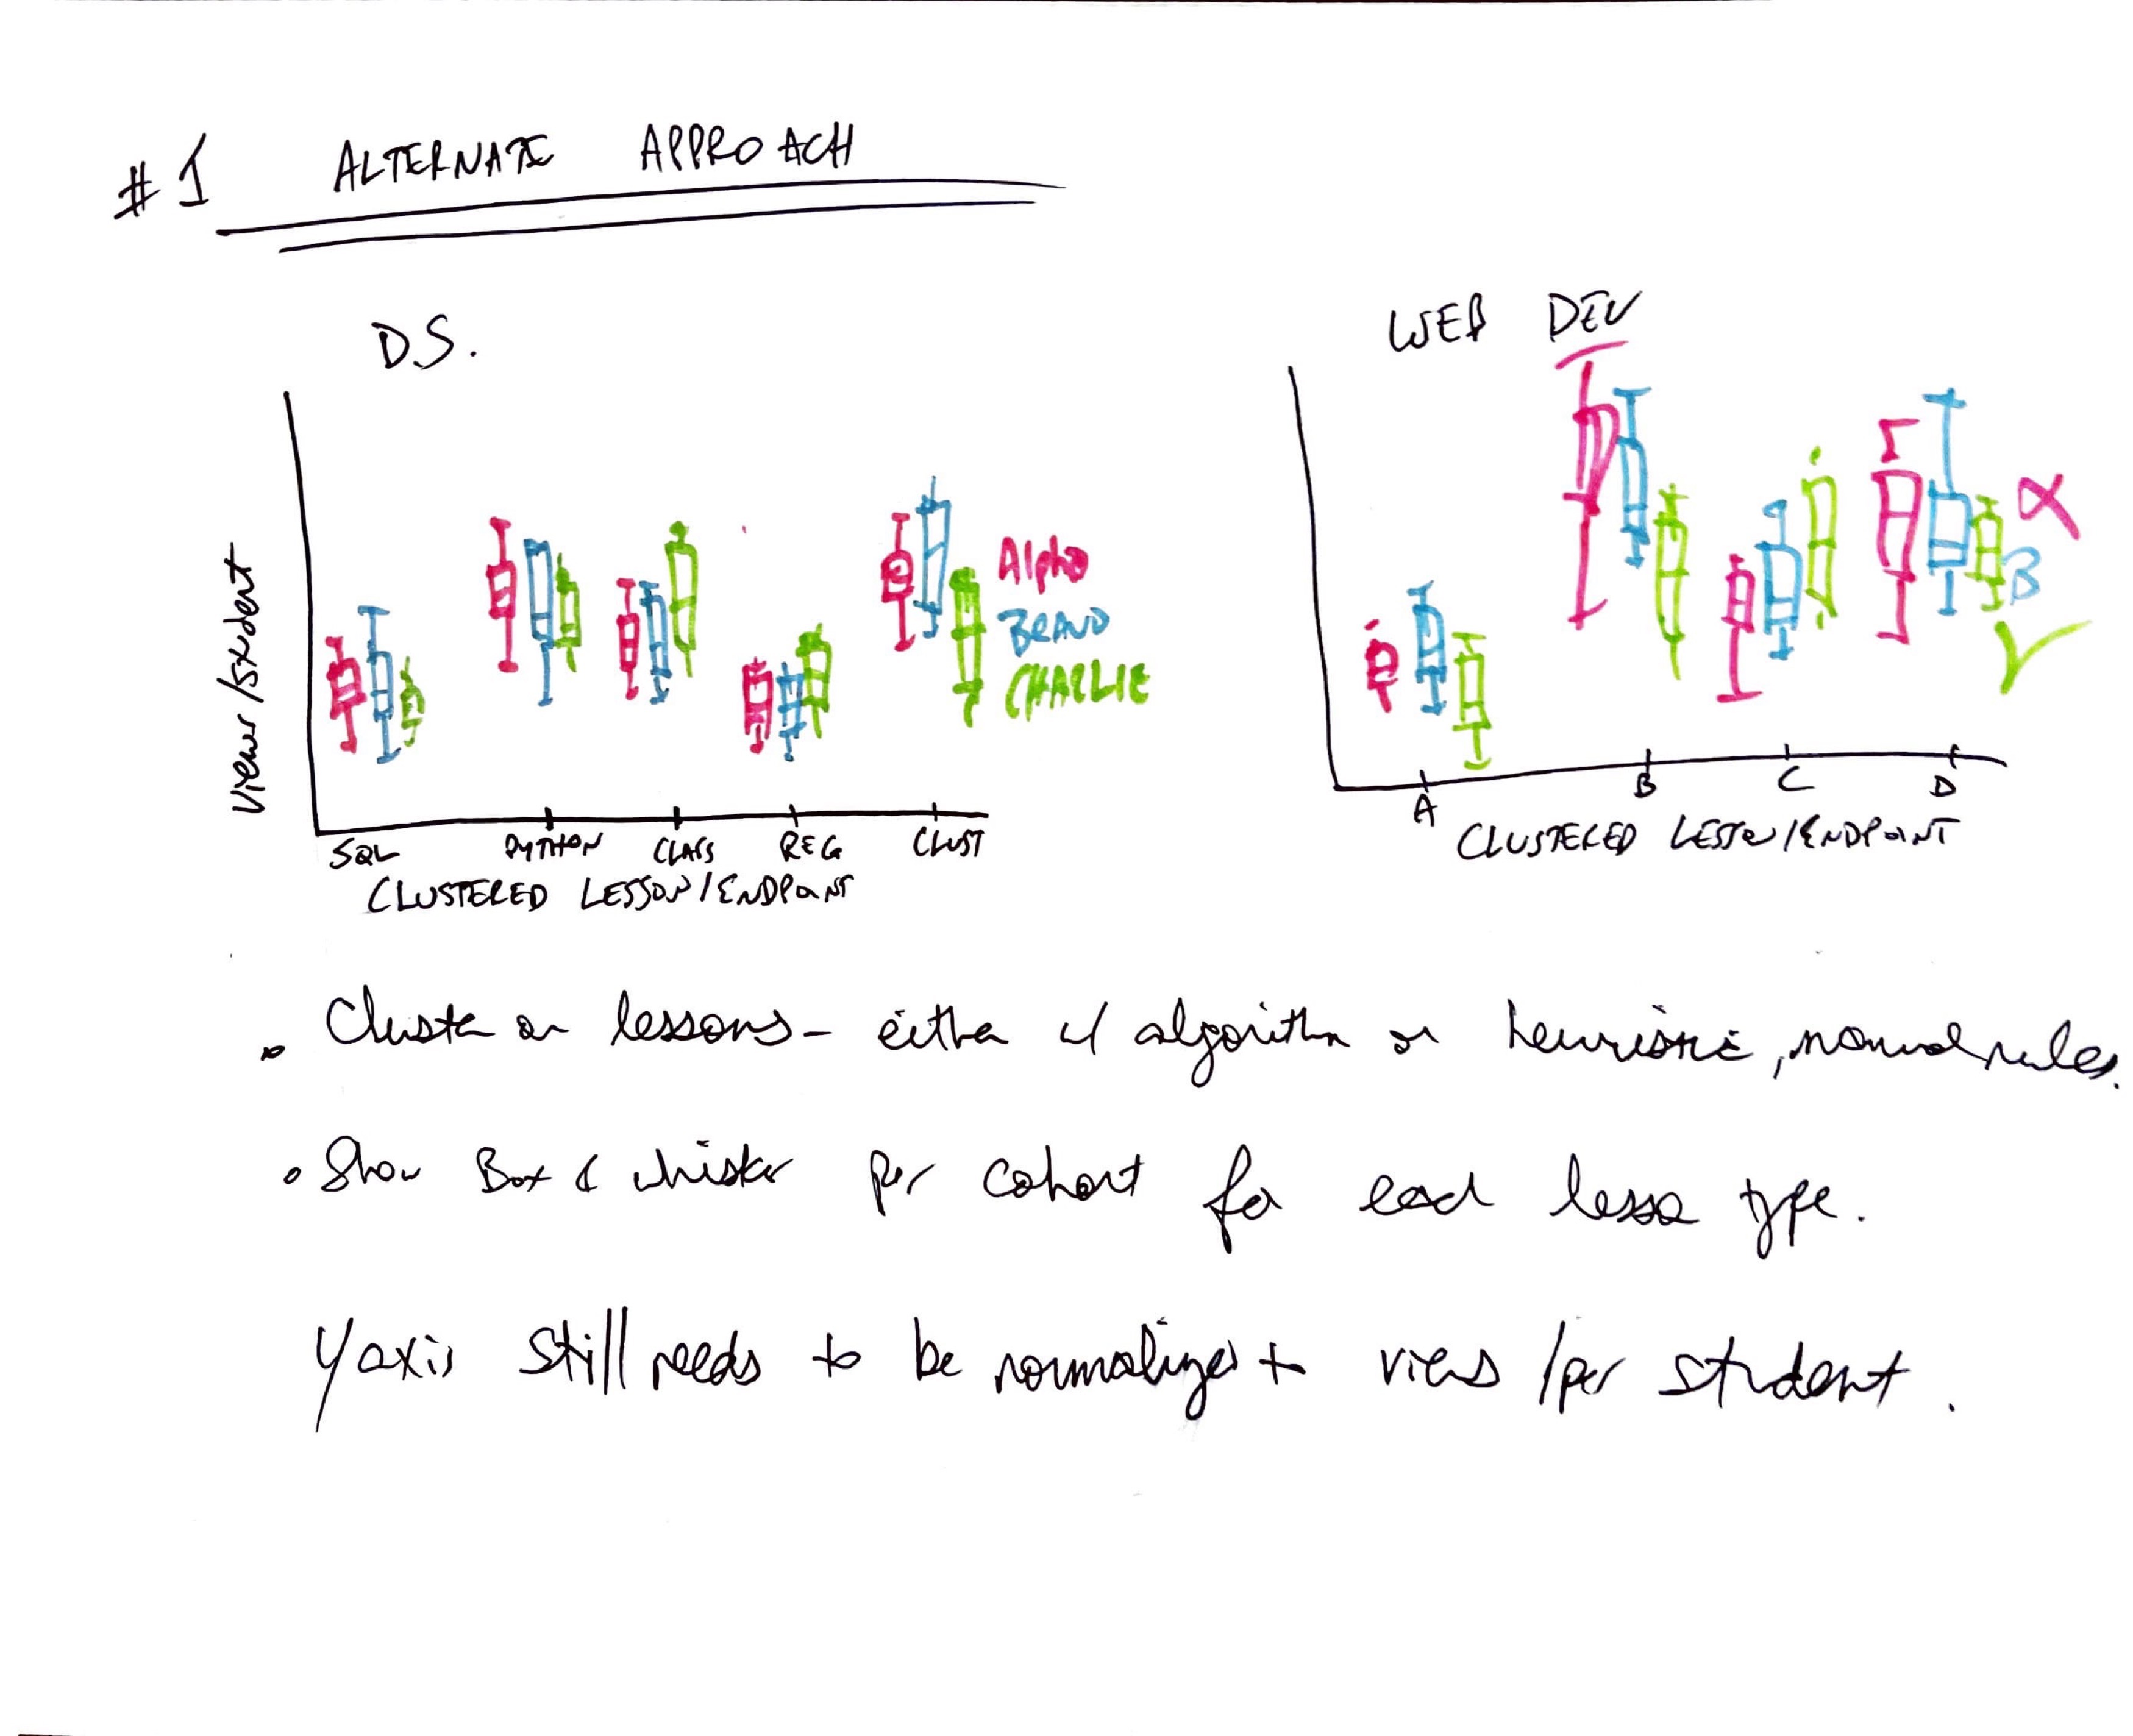 #1 ALTERNATE APPROACH
D.S.
WEB DEV
Views/student
Alpha
BRAVO
CHARLIE
SQL PYTHON CLASS REG CLUST
CLUSTERED LESSON/ENDPOINT
α
β
γ
A B C D
CLUSTERED LESSON/ENDPOINT
• Cluster on lessons - either w/ algorithm or heuristic, manual rules.
• Show Box & whisker per cohort for each lesson type.
Y axis still needs to be normalized to views /per student.